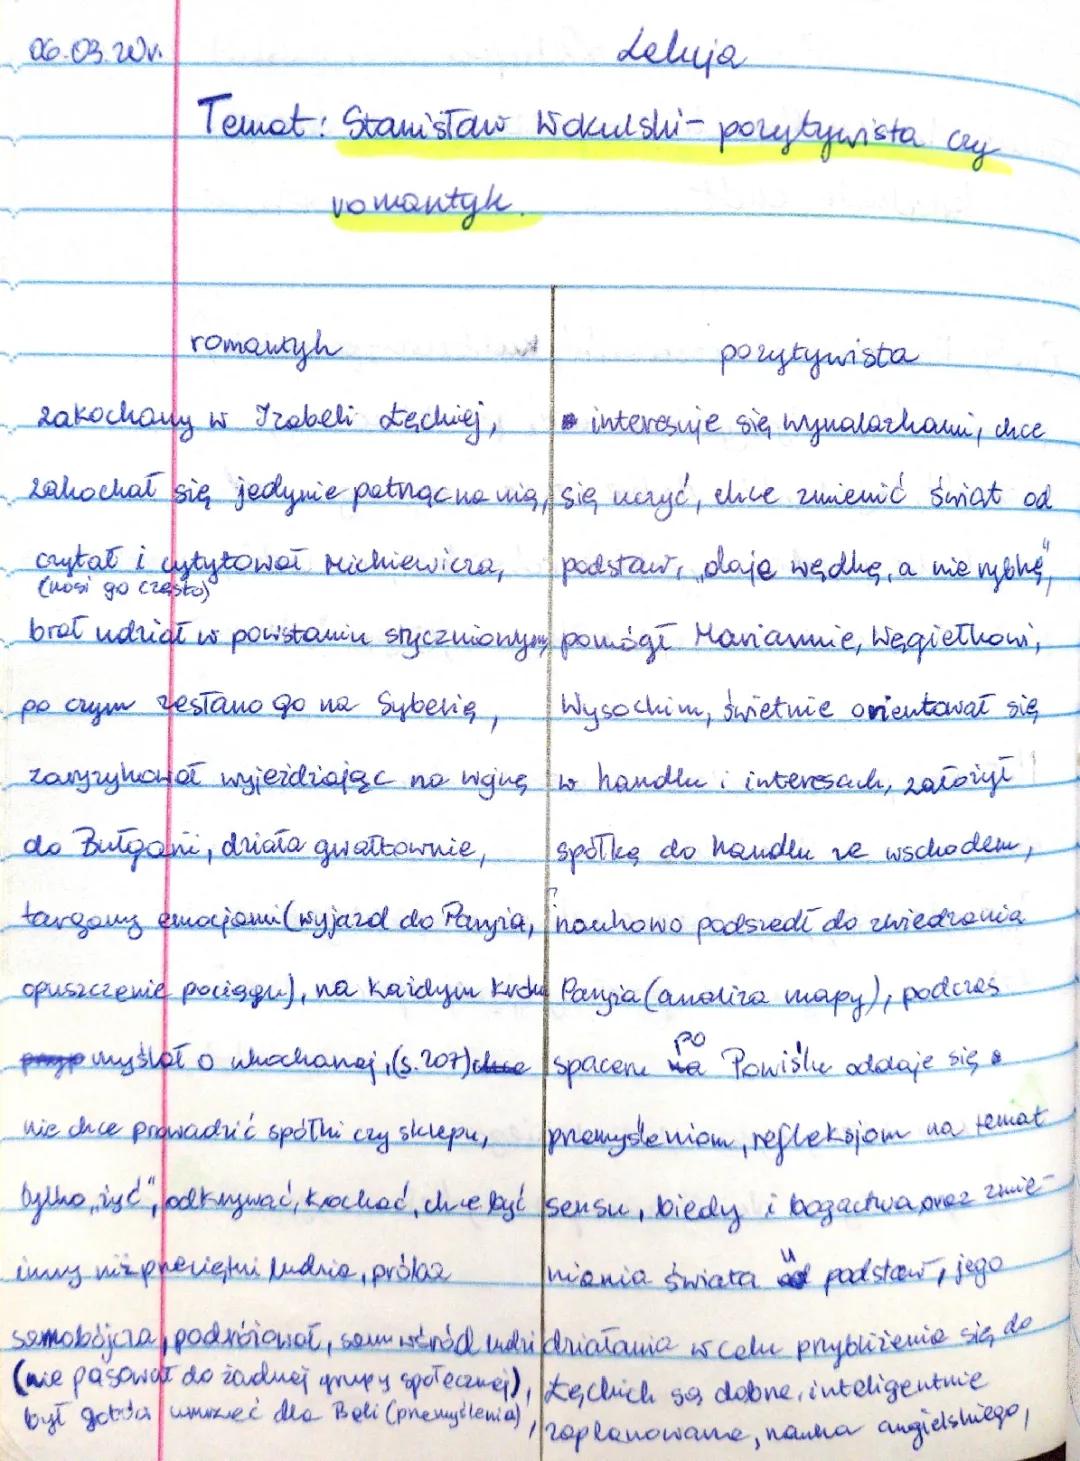 06.03.20r.
Lekcja
Temat: Stanisław Wokulski - pozytywista czy
romantyk.
romantyk
zakochany w Izabeli Łęckiej,
zakochał się jedynie patrząc na nią,
czytał i cytytował Mickiewicza,
(nosi go często)
brał udział w powstaniu styczniowym,
po czym zesłano go na Syberię,
zaryzykował wyjeżdżając na wojnę
do Bułgarii, działa gwałtownie,
targany emocjami (wyjazd do Paryża,
opuszczenie pociągu), na każdym kroku
myślał o ukochanej, (s. 207)
nie chce prowadzić spółki czy sklepu,
tylko „żyć", odkrywać, kochać, chce być
inny niż przeciętni ludzie, próba
samobójcza, podróżował, sam wśród ludzi
(nie pasował do żadnej grupy społecznej),
był gotów umrzeć dla Beli (przemyślenia),
pozytywista
interesuje się wynalazkami, chce
się uczyć, chce zmienić świat od
podstaw, „daje wędkę, a nie rybkę",
pomógł Mariannie, Węgiełkowi,
Wysockim, świetnie orientował się
w handlu i interesach, założył
spółkę do handlu ze wschodem,
naukowo podszedł do zwiedzania
Paryża (analiza mapy), podczas
spaceru po Powiślu oddaje się
przemyśleniom, refleksjom na temat
sensu, biedy i bogactwa oraz zmie-
niania świata u podstaw, jego
działania w celu przybliżenia się do
Łęckich są dobre, inteligentnie
zaplanowane, nauka angielskiego,